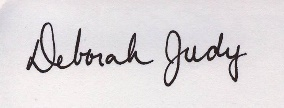 Deborah Judy